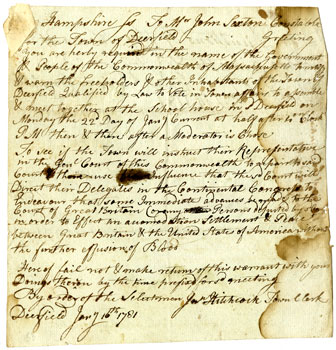 Hampshire ss To Mr John Sexton Constable
for the Town of Deerfield Greeting
you are herby requird in the name of the Government
& People of the Commonwealth of Massachusetts to notify
& warn the freeholders & other Inhabitants of the Town of
Deerfield Qualified by Law to Vote in Town affairs to assemble
& meet together at the School house in sd Deerfield on
Monday the 22d Day of Jany Current at half after 12 oClock
P M then & there after a Moderator is Chose
To see if the Town will instruct their Representative
in the Genl Court of this Commonwealth to repair to said
Court & there use influence that the sd Court will
Direct their Delegates in the Continental Congress to
Endeavour that some Immediate advances be made to the
Court of Great Britain Persons appointed by
in order to Effect an accomodation Settlement &
between Great Britain & the United States of America without
the further effusion of Blood
Here of fail not & make return of this warrant with your
Doings thereon by the time prefixd for sd meeting
By order of the Selectmen Jas Hitchcock Town Clark
Deerfield Jany 16th 1781